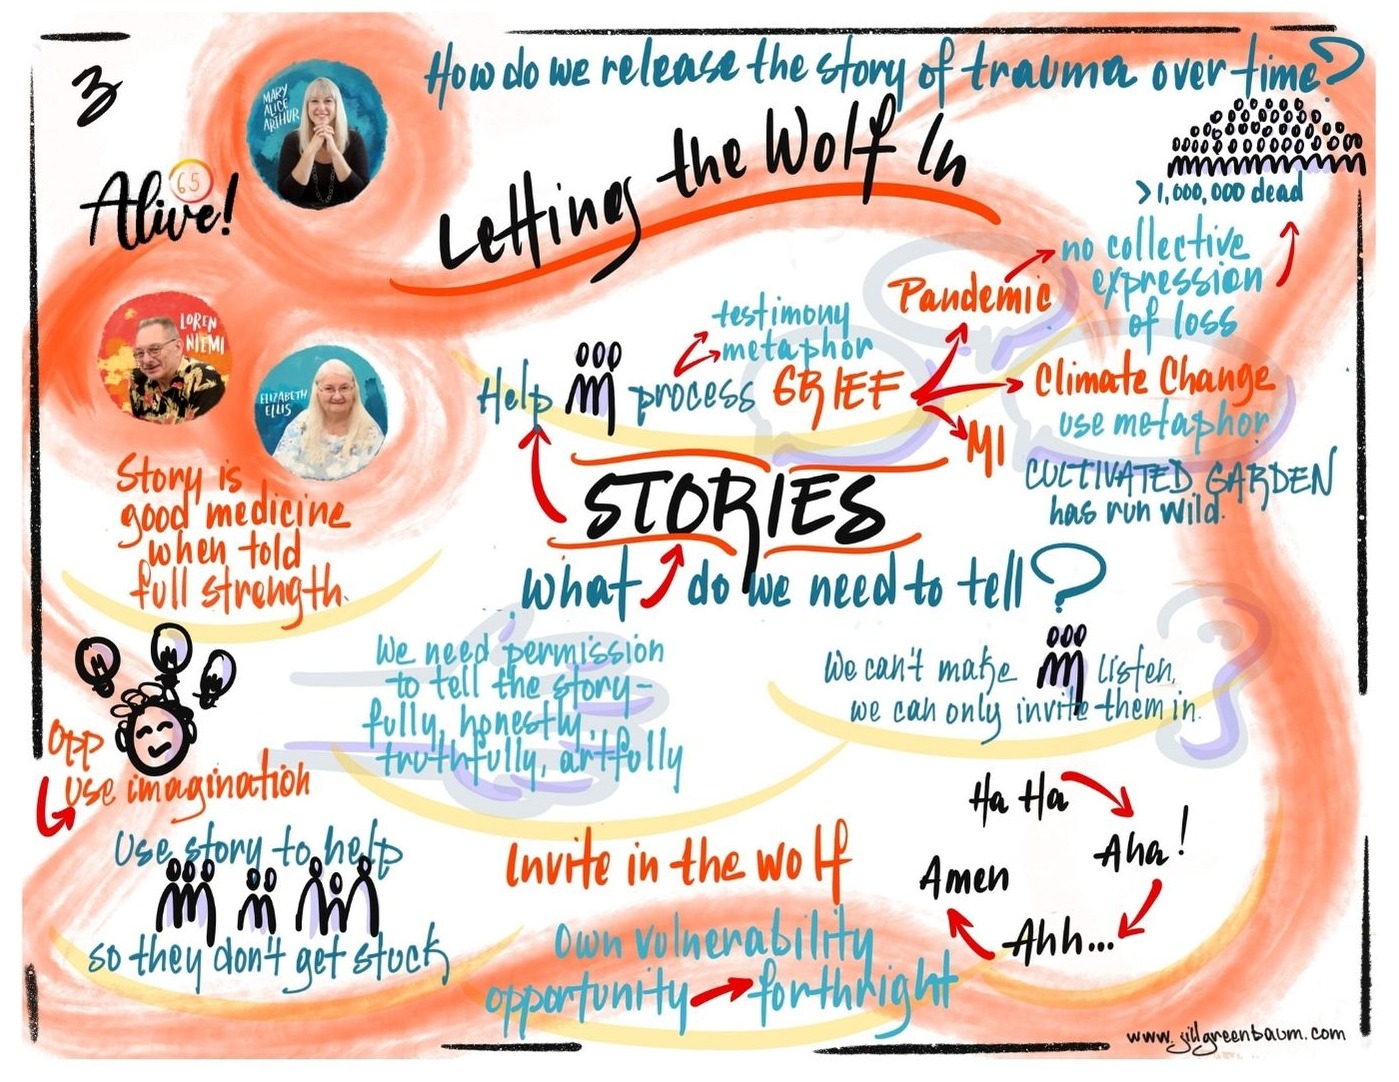 3
How do we release the story of trauma over time?
Letting the Wolf In
Alive!
65
MARY
ALICE
ARTHUR
LOREN
NIEMI
ELIZABETH
ELLIS
>1,000,000 dead
no collective
expression
of loss
Pandemic
testimony
metaphor
Help process GRIEF
Climate Change
use metaphor
MI
CULTIVATED GARDEN
has run wild.
STORIES
What do we need to tell?
Story is
good medicine
when told
full strength.
We need permission
to tell the story-
fully, honestly,
truthfully, artfully
We can't make listen,
we can only invite them in.
Opp
Use imagination
Use story to help
so they don't get stuck
Invite in the wolf
Own vulnerability
opportunity forthright
Ha Ha
Aha!
Ahh...
Amen
www.jillgreenbaum.com